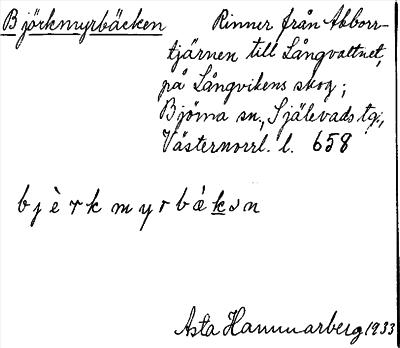 Björkmyrbäcken Rinner från Abborr-
tjärnen till Långvattnet,
på Långvikens skog;
Björna sn, Själevads tg,
Västernorrl. l. 658
bjèrkmyrbák
Asta Hammarberg 1933